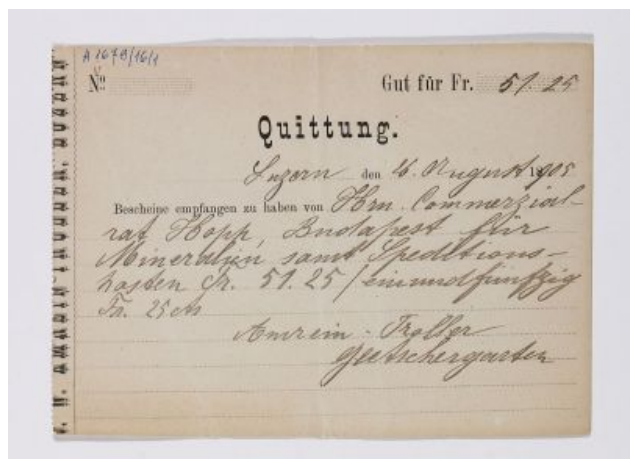 A 1679/16/1
No. Gut für Fr. 51. 25
Quittung.
Luzern den 16. August 1905
Bescheine empfangen zu haben von Hrn. Commerzial-
rat Hopp, Budapest für
Mineralien samt Speditions-
kosten Fr. 51.25 / einundfünfzig
Fr. 25 cts
Amrein-Troller
Gletschergarten